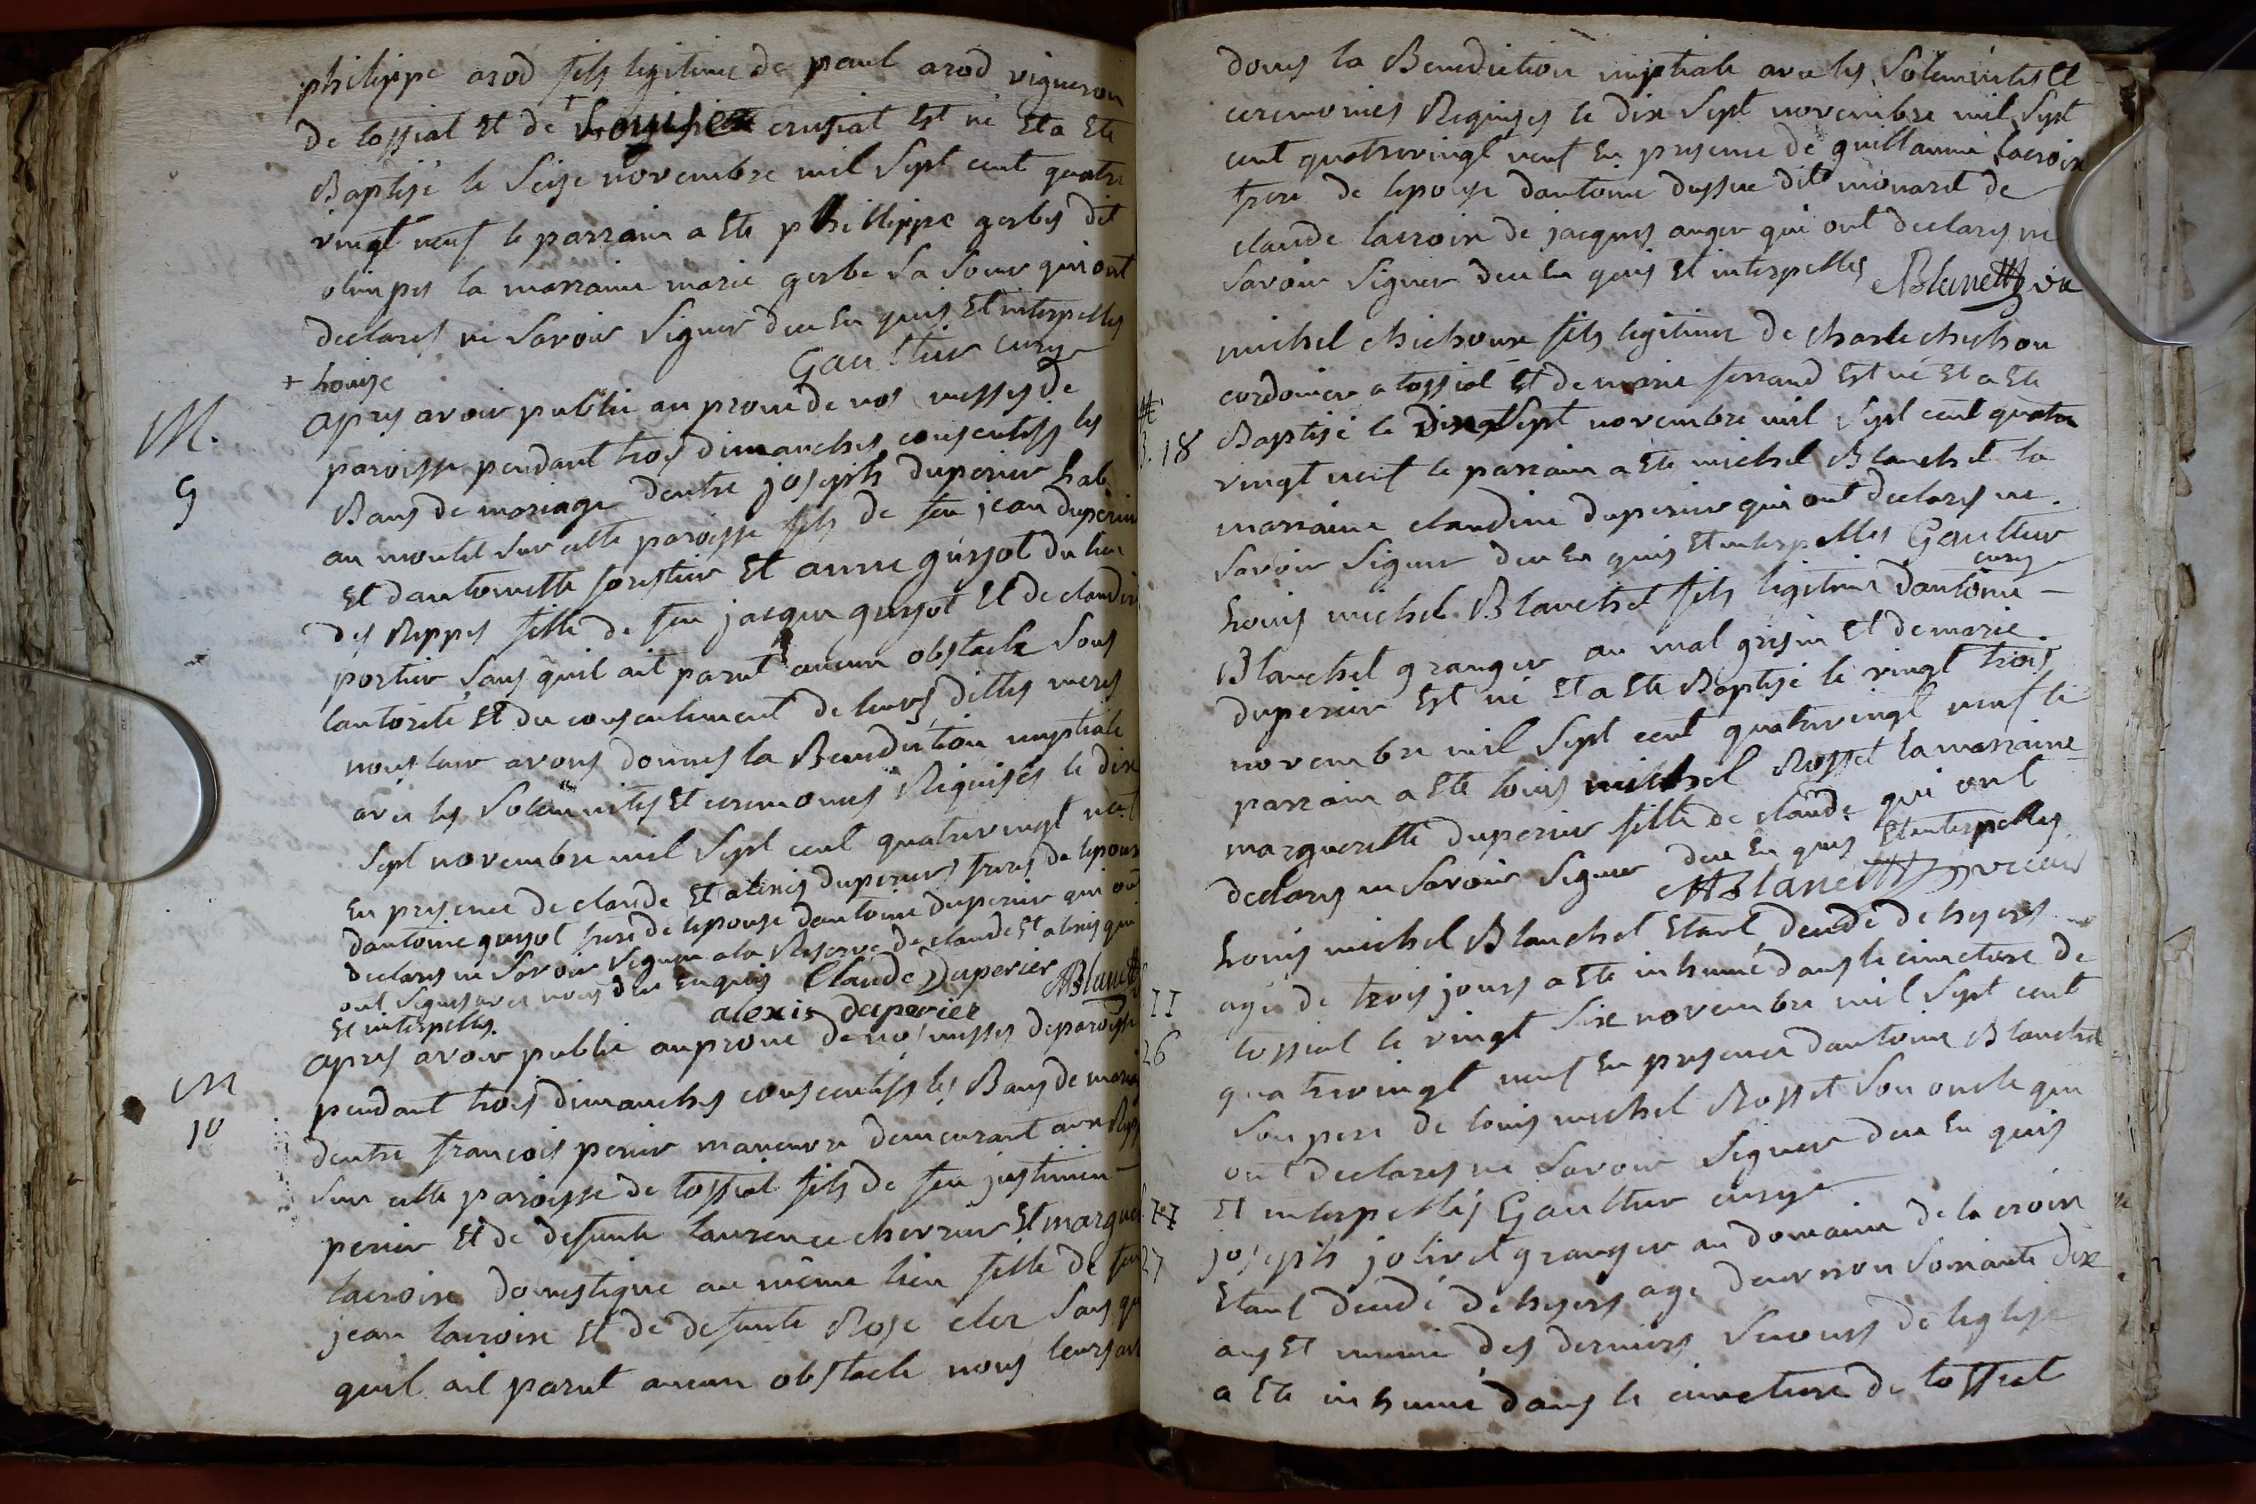 philippe arod fils legitime de paul arod vigneron
de tossiat Et de + Louise crusiat Est né Et a Ete
Baptisé le Seize novembre mil Sept cent quatre
vingt neuf le parrain a Ete phillippe gerbes dit
olimpes la marraine marie gerbe Sa Soeur qui ont
declarés ne Savoir Signer deu En quis Et interpellés
Gaultier curé
+ Louise
M.
9
apres avoir publié au prone de nos messes de
paroisse pendant trois dimanches consecutifs les
Bans de mariage dentre joseph duperier hab
au montel Sur cette paroisse fils de feu jean duperier
Et dantoinette forestier Et anne guyot du lieu
des Rippes fille de feu jacque guyot Et de claudi
portier Sans quil ait parut aucun obstacle Sous
lautorité Et du consentement de leurs dittes meres
nous leur avons donnés la Benediction nuptiale
avec les Solemnités Et ceremonies Requises le dix
Sept novembre mil Sept cent quatrevingt neuf
En presence de claude Et alexis duperier freres de lepoux
dantoine guyot frere de lepouse dantoine duperier qui ont
declarés ne Savoir Signer a la Reserve de claude Et alexis qui
ont Signés avec nous deu Enquis Claude Duperier
Et interpellés. alexis duperier
M
10
apres avoir publié au prone de nos messes de paroisse
pendant trois dimanches consecutifs les Bans de mariag
dentre francois perier maneuvre demeurant aux Ripp
Sur cette paroisse de tossiat fils de feu
perier Et de defunte laurence chevrier Et margue
lacroix domestique au même lieu fille de feu
jean lacroix Et de defunte Rose cler Sans
quil ait parut aucun obstacle nous leurs av
donés la Benediction nuptiale avec les Solemnités Et
ceremonies Requises le dix Sept novembre mil Sept
cent quatrevingt neuf En presence de guillaume lacroix
frere de lepouse dantoine dit monaret de
claude lacroix de jacques auger qui ont declarés ne
Savoir Signer deu En quis Et interpellés
michel chichoux fils legitime de charle chichou
cordonier a tossiat Et de marie ferrand Est né Et a Ete
18 Baptisé le dix Sept novembre mil Sept cent quatre
vingt neuf le parrain a Ete michel Blanchet la
marraine claudine duperier qui ont declarés ne
Savoir Signer deu En quis Et interpellés Gaultier
curé
Louis michel Blanchet fils legitime dantoine
Blanchet granger au mal grisin Et de marie
duperier Est né Et a Ete Baptisé le vingt trois
novembre mil Sept cent quatrevingt neuf le
parrain a Ete louis michel Rosset la marraine
marguerette duperier fille de claude qui ont
declarés ne Savoir Signer deu En quis Et interpellés
Louis michel Blanchet Etant decedé dehyers
II agé de trois jours a Ete inhumé dans le cimetiere de
26 tossiat le vingt Six novembre mil Sept cent
quatrevingt neuf En presence dantoine Blanchet
Son pere de louis michel Rosset Son oncle qui
ont declarés ne Savoir Signer deu En quis
Et interpellés Gaultier curé
27 joseph jolivet granger au domaine de la croix
Etant decedé dehyers agé denviron Soixante dix
ans Et munie des derniers Secours de leglise
a Ete inhumé dans le cimetiere de tossiat